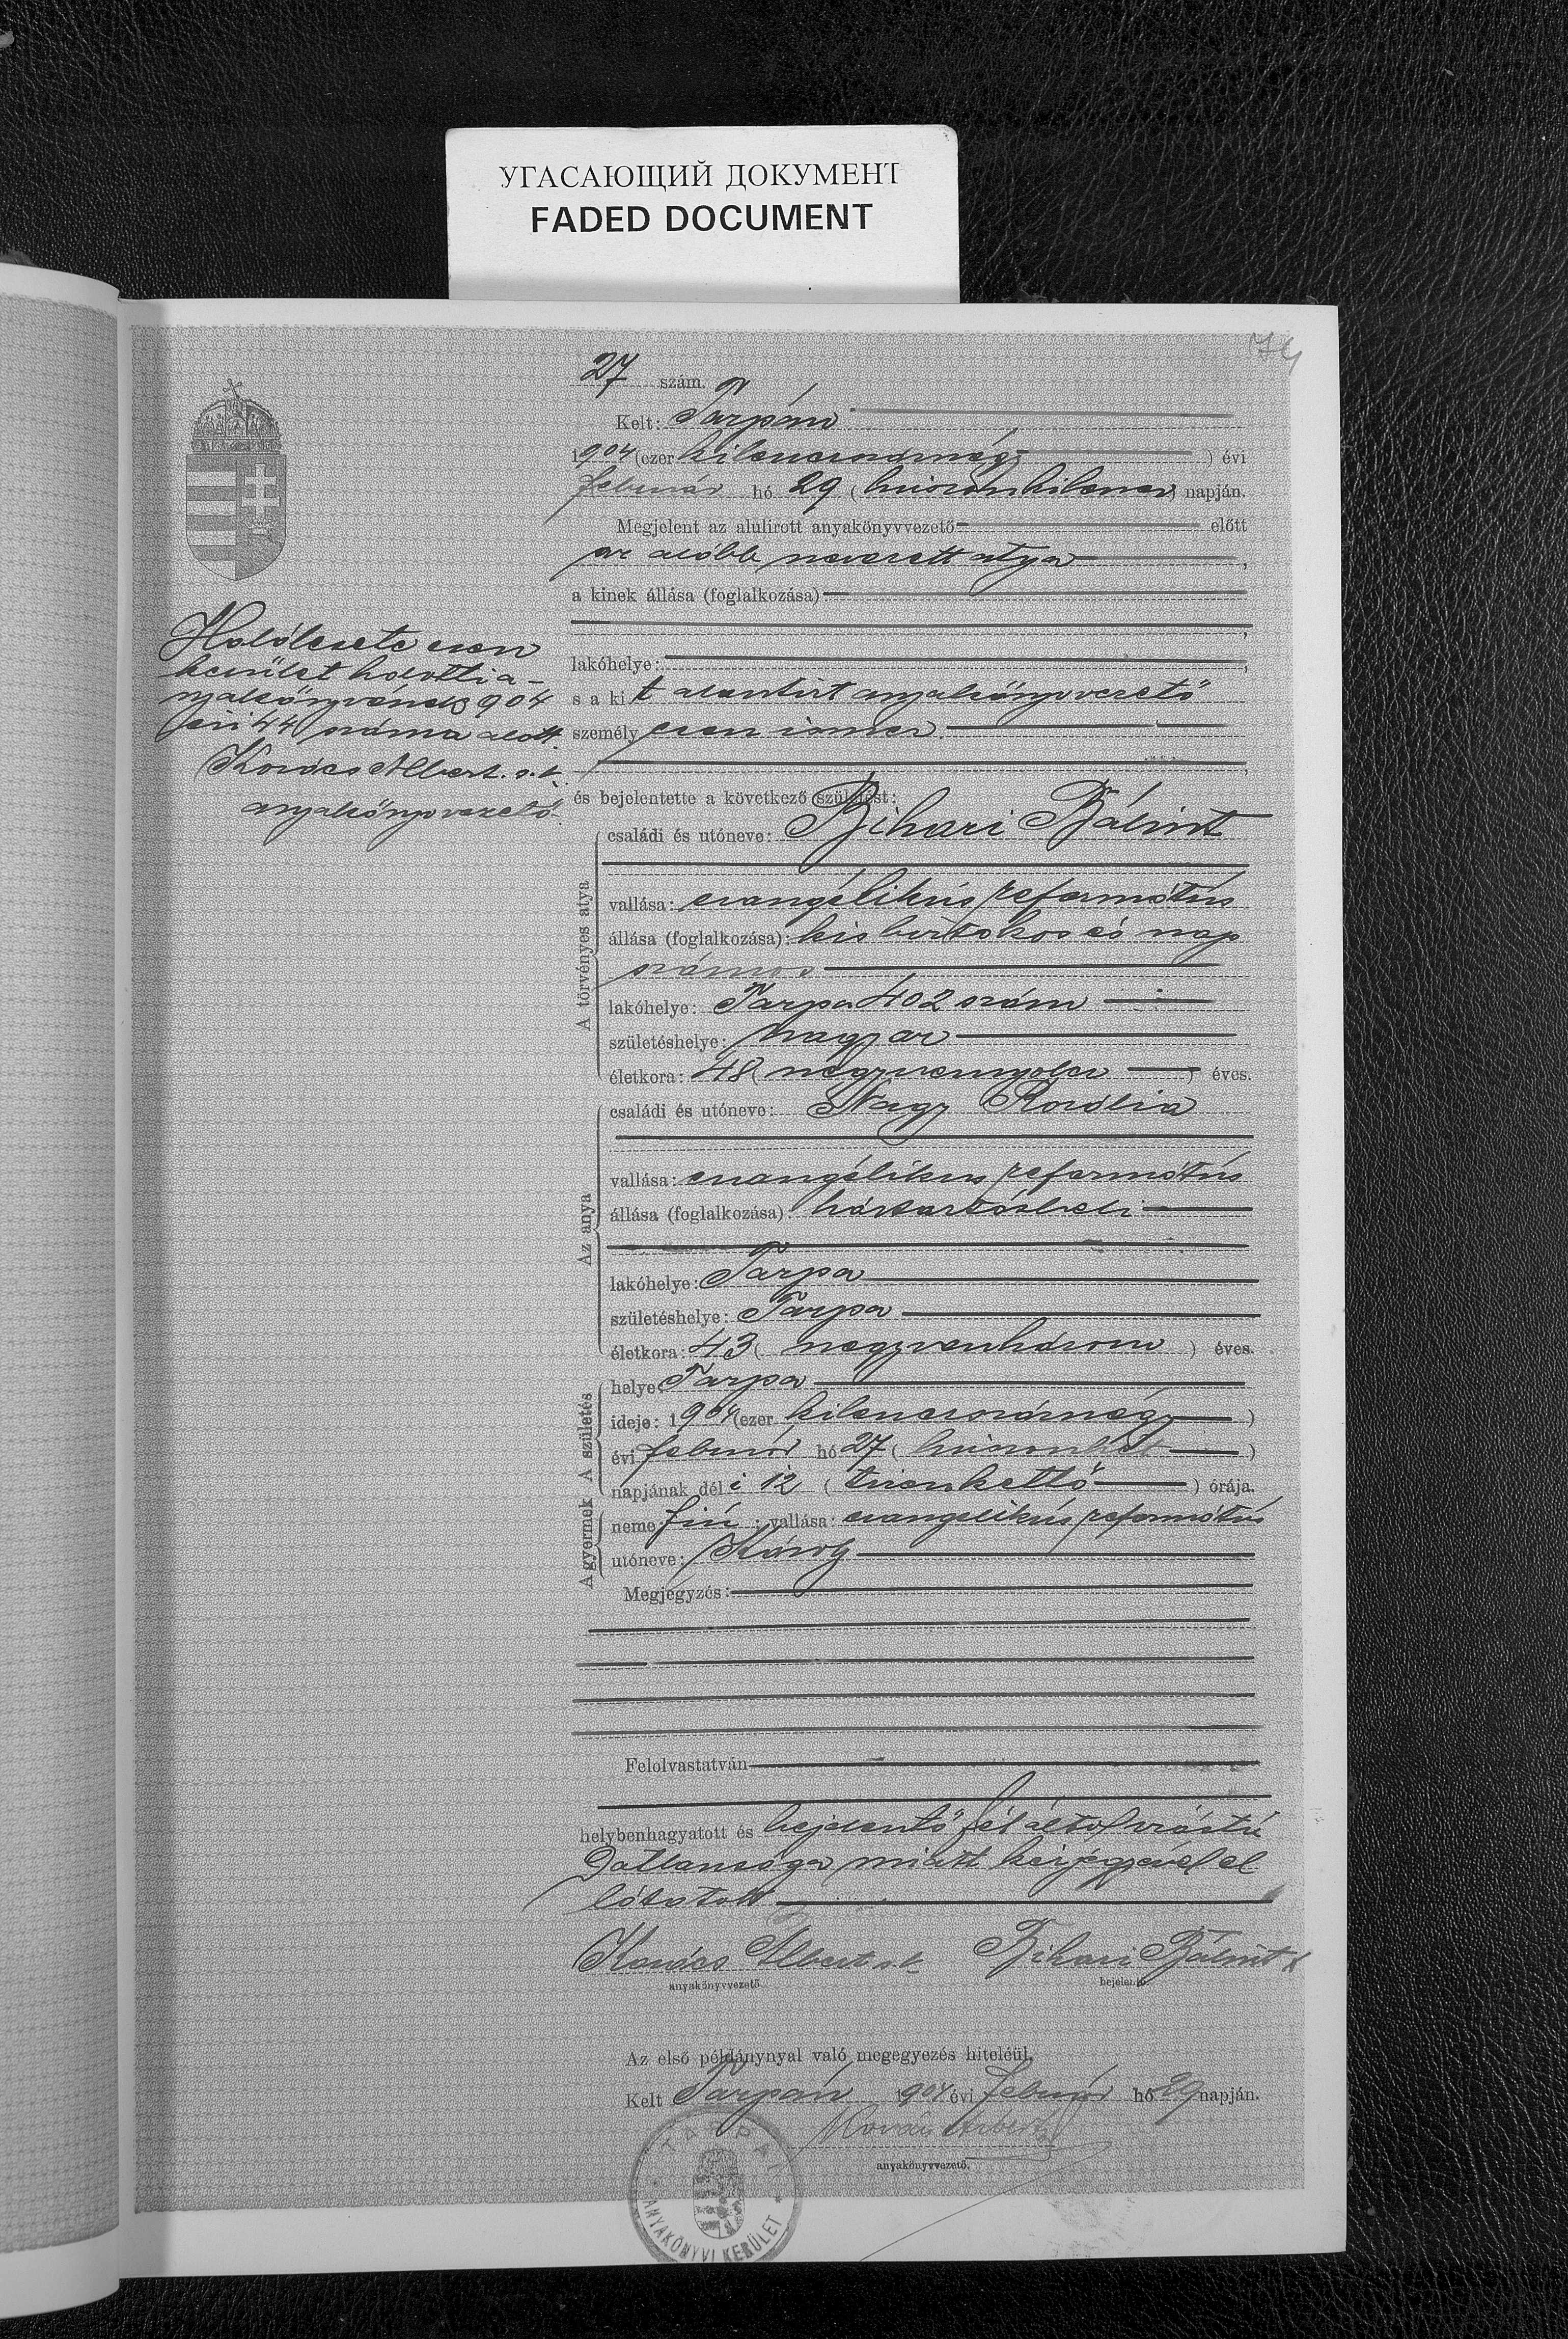 УГАСАЮЩИЙ ДОКУМЕНТ
FADED DOCUMENT
74
27 szám.
Kelt: Tarpán
1904 (ezer kilencszáznégy) évi
február hó 29 (huszonkilencz) napján.
Megjelent az alulírott anyakönyvvezető előtt
az alább nevezett atya,
a kinek állása (foglalkozása)
,
lakóhelye: ,
s a kit alantirt anyakönyvvezető
személyesen ismer
,
és bejelentette a következő születést:
Halálesete ezen
kerület halotti a-
nyakönyvének 904
évi 44 száma alatt.
Kovács Albert. s.k.
anyakönyvvezető.
A törvényes atya
családi és utóneve: Bihari Bálint
vallása: evangélikus református
állása (foglalkozása): kisbirtokos és nap
számos
lakóhelye: Tarpa 402 szám
születéshelye: Nagyar
életkora: 48 (negyvennyolcz) éves.
Az anya
családi és utóneve: Nagy Rozália
vallása: evangélikus református
állása (foglalkozása): háztartásbeli
lakóhelye: Tarpa
születéshelye: Tarpa
életkora: 43 (negyvenhárom) éves.
A születés
helye: Tarpa
ideje: 1904 (ezer kilencszáznégy)
évi február hó 27 (huszonhét)
napjának déli 12 (tizenkettő) órája.
A gyermek
neme: fiú; vallása: evangelikus református
utóneve: Károly
Megjegyzés:
Felolvastatván
helybenhagyatott és bejelentő fél által irástu
datlansága miatt kézjegyével el
látatott
Kovács Albert s.k. Bihari Bálint x
anyakönyvvezető. bejelentő
Az első példánynyal való megegyezés hiteléül.
Kelt Tarpán 1904 évi február hó 29 napján.
Kovács Albert
anyakönyvvezető.
TARPAI
ANYAKÖNYVI KERÜLET